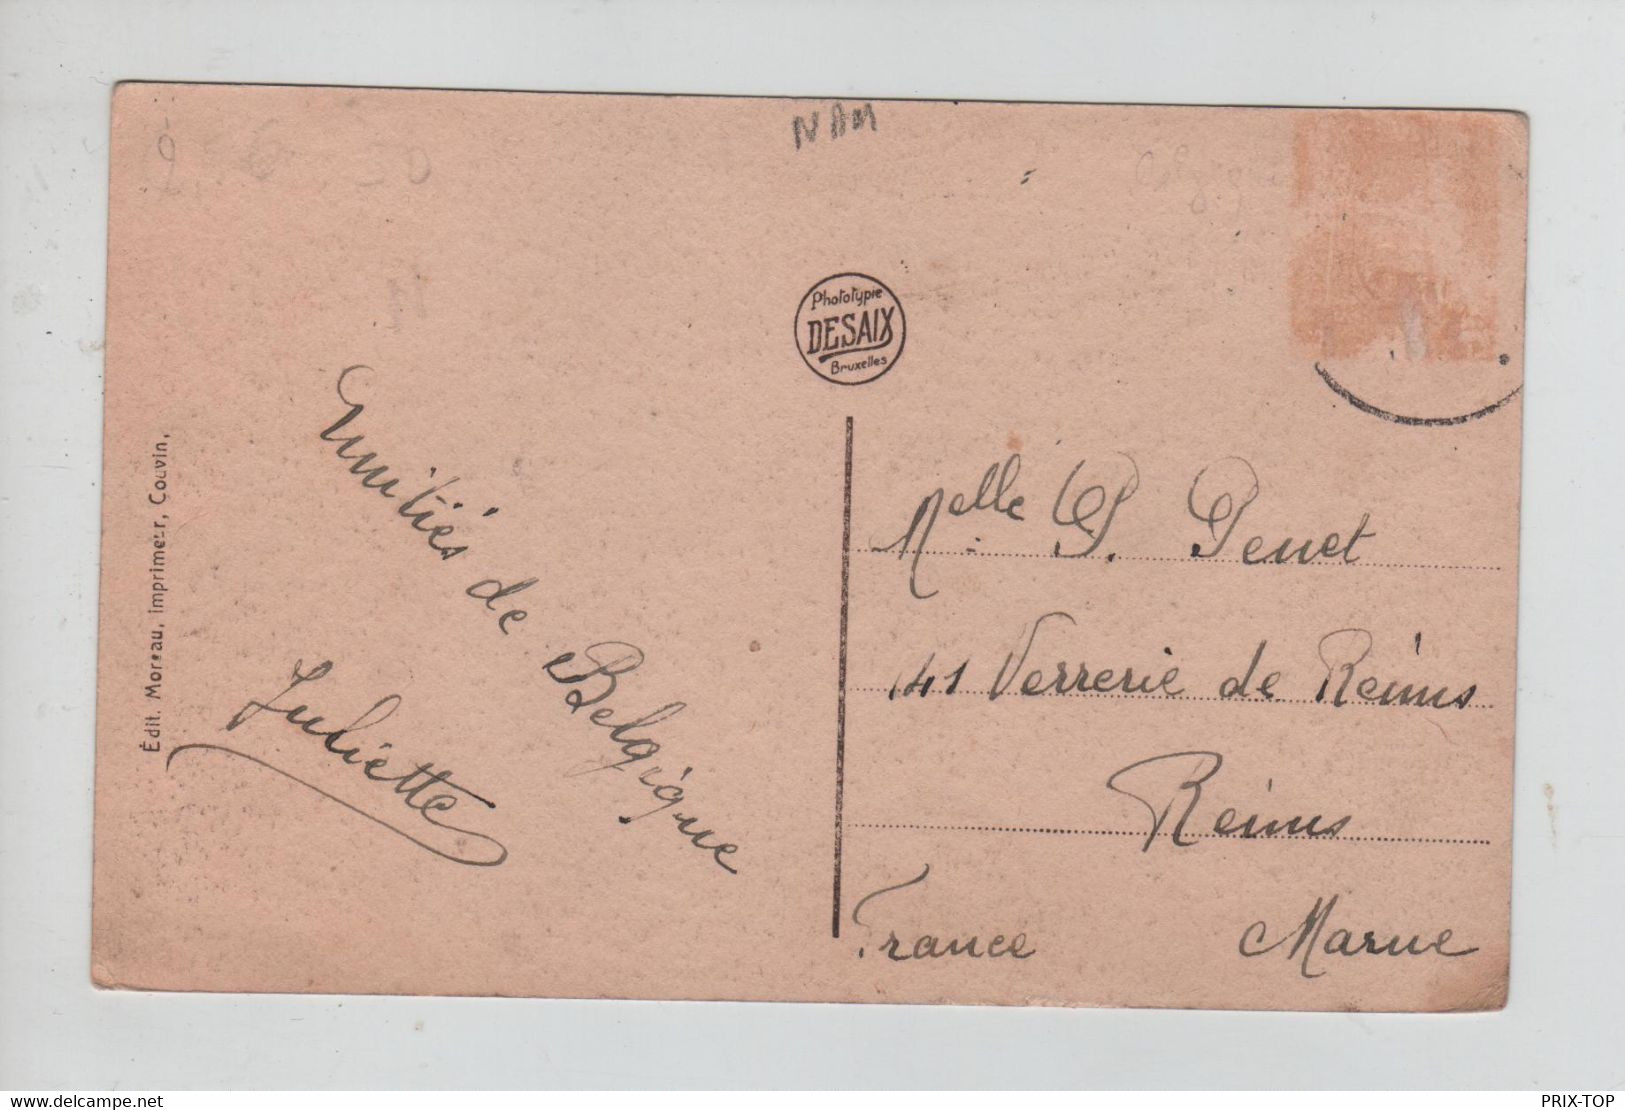 NAM
Phototypie
DESAIX
Bruxelles
Édit. Moreau, imprimeur, Couvin,
Amitiés de Belgique
Juliette
Melle P. Penet
141 Verrerie de Reims
Reims
France Marne
www.delcampe.net
PRIX-TOP